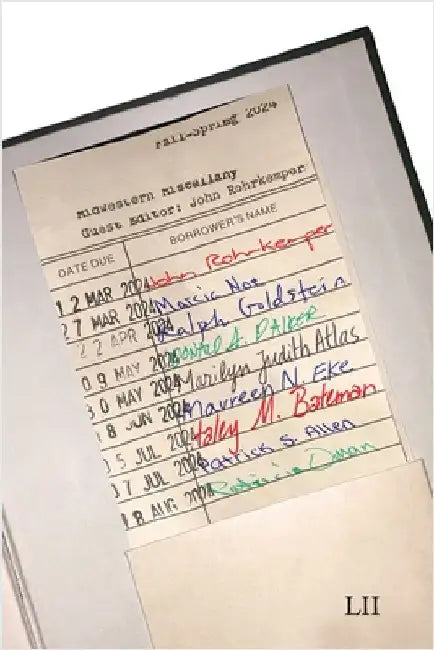 Fall-Spring 2024
Midwestern Miscellany
Guest Editor: John Rohrkemper
DATE DUE BORROWER'S NAME
12 MAR 2024 John Rohrkemper
27 MAR 2024 Marcia Noe
22 APR 2024 Ralph Goldstein
09 MAY 2024 A. DALKER
30 MAY 2024 Marilyn Judith Atlas
8 JUN 2024 Maureen N. Eke
5 JUL 2024 Haley M. Bateman
7 JUL 2024 Patrick S. Allen
18 AUG 2024 Patricia Oman
LII